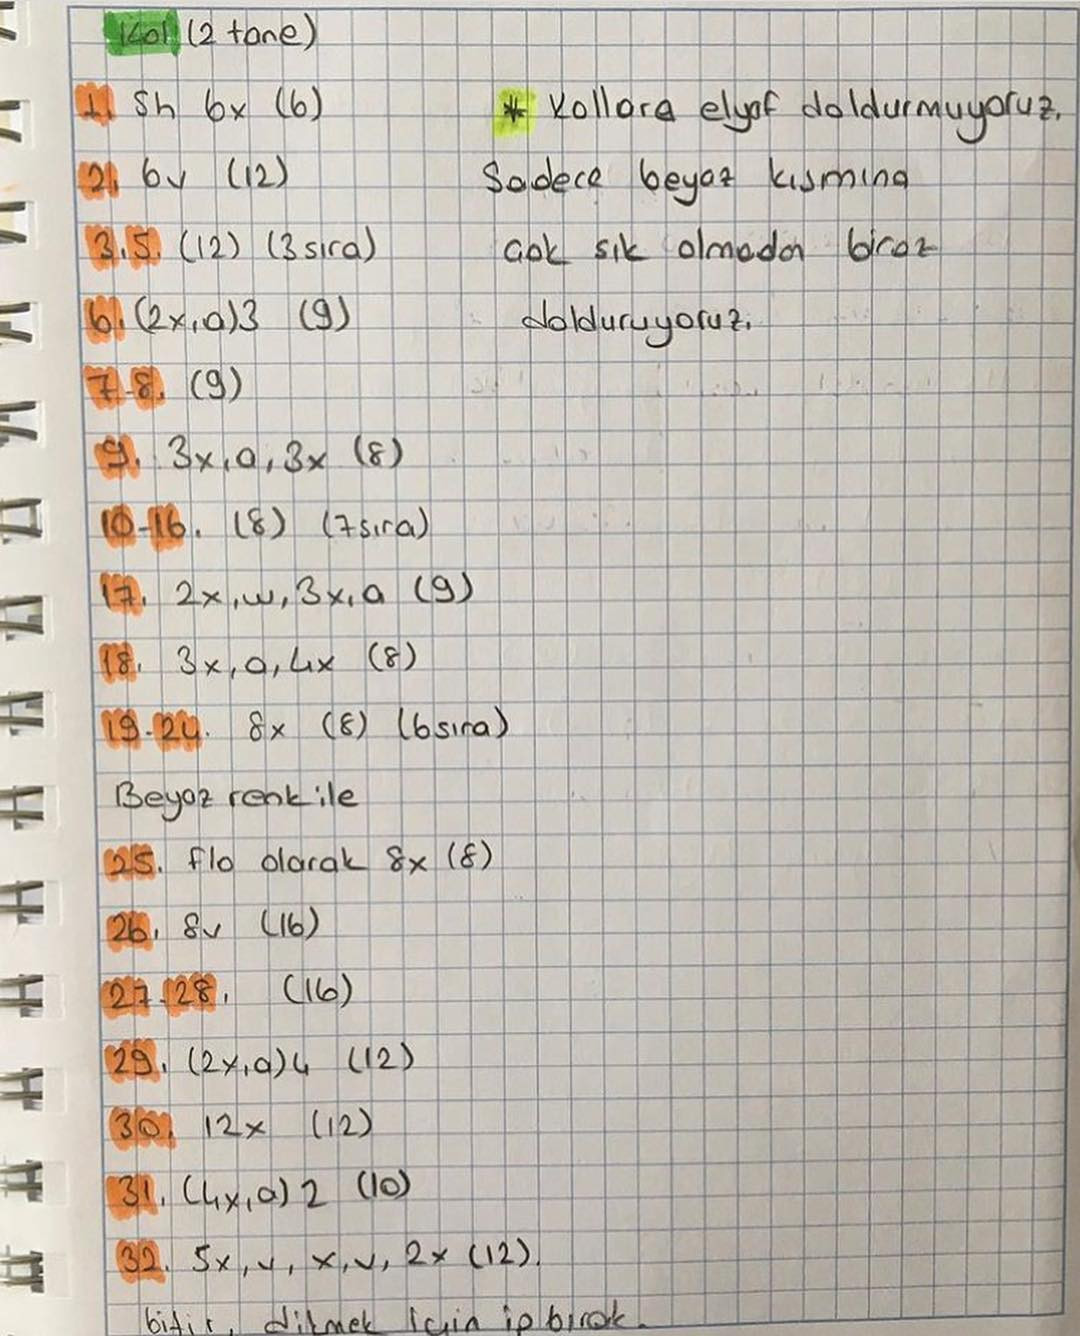 Kol (2 tane)
1. Sh 6x (6)
* Kollara elyaf doldurmuyoruz.
2. 6v (12)
Sadece beyaz kısmına
3.5. (12) (3 sıra)
çok sık olmadan biraz
6. (2x,a)3 (9)
dolduruyoruz.
7-8. (9)
9. 3x,a,3x (8)
10-16. (8) (7 sıra)
17. 2x,w,3x,a (9)
18. 3x,a,4x (8)
19-24. 8x (8) (6 sıra)
Beyaz renk ile
25. flo olarak 8x (8)
26. 8v (16)
27-28. (16)
29. (2x,a)4 (12)
30. 12x (12)
31. (4x,a)2 (10)
32. 5x,v,x,v,2x (12).
bitir, dikmek için ip bırak.